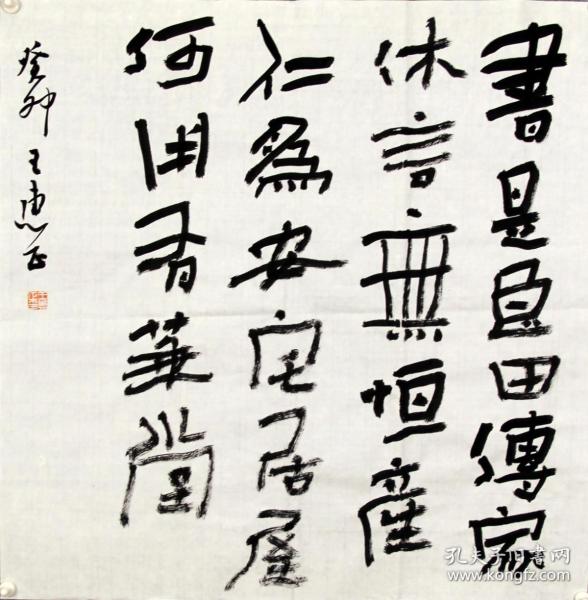 書是良田傳家
休言無恒産
仁爲安宅居屋
何用有華堂
癸卯 王惠正
孔夫子旧书网
www.kongfz.com